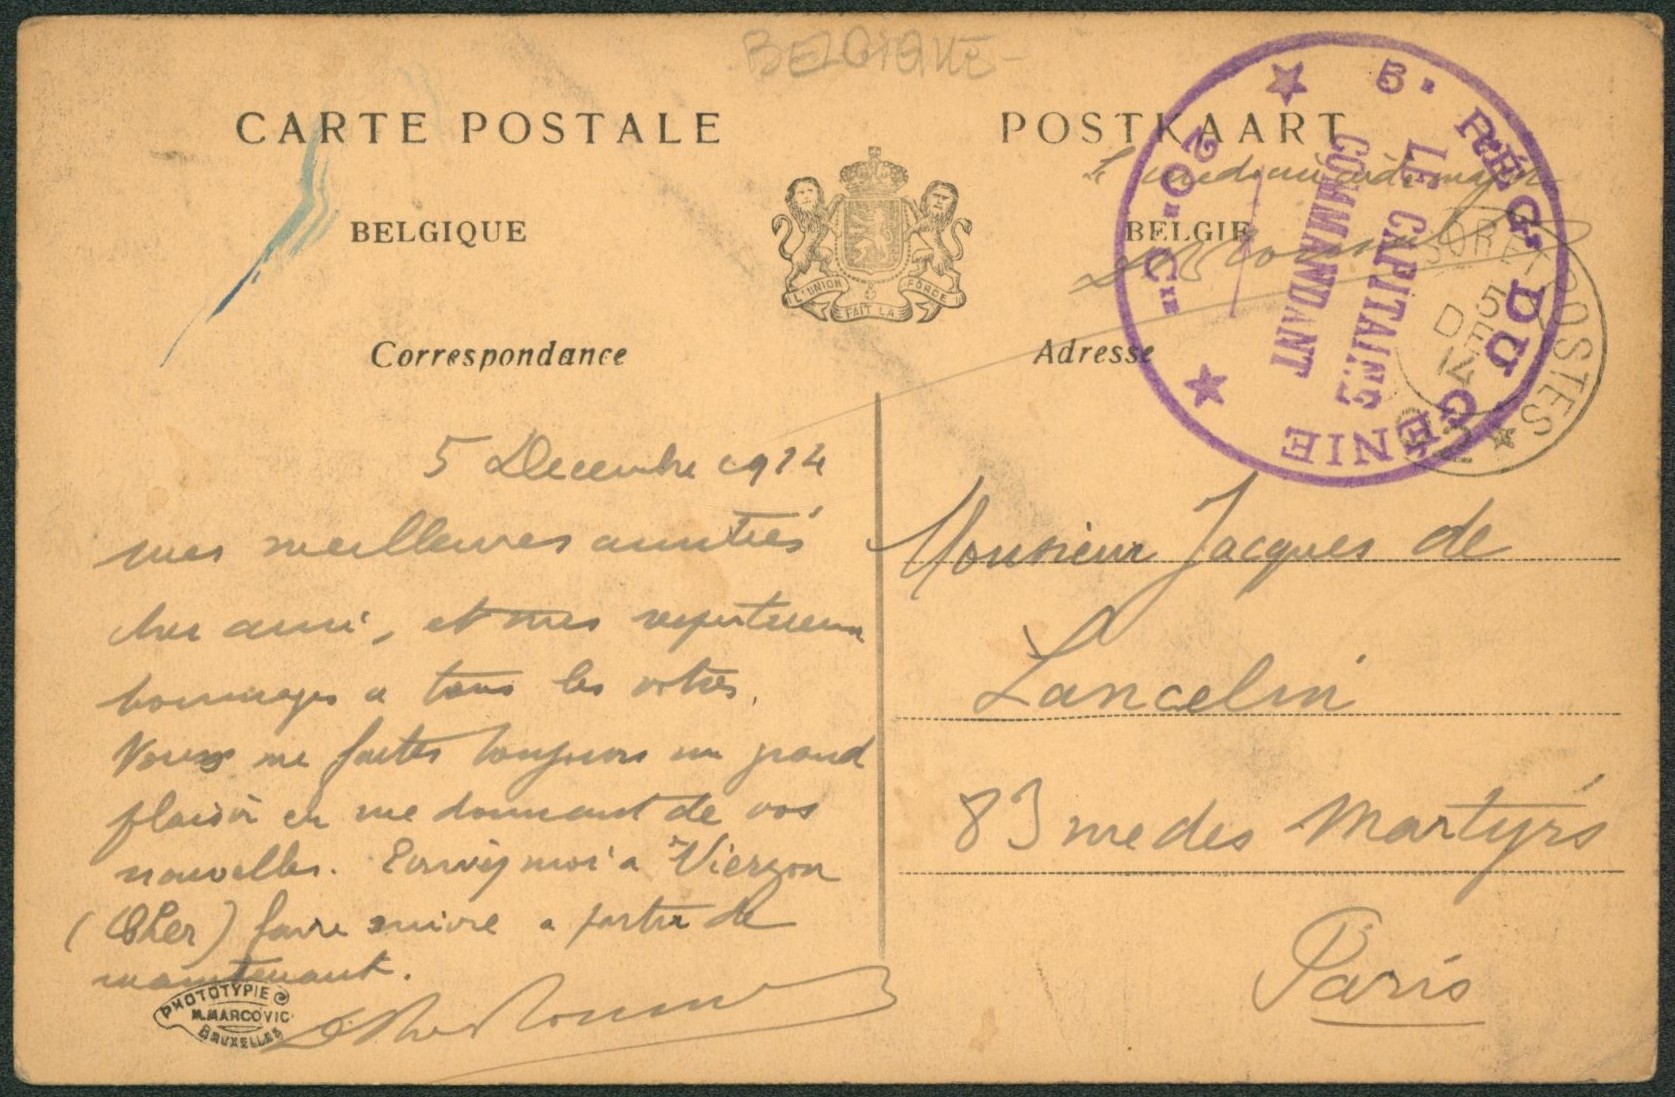 BELGIQUE
CARTE POSTALE
POSTKAART
BELGIQUE
BELGIE
L'UNION FAIT LA FORCE
Correspondance
Adresse
Le médecin aide major
5e RÉGt DU GÉNIE
20e Cie
LE CAPITAINE
COMMANDANT
POSTES
5
DE
14
5 Decembre 1914
mes meilleures amitiés
cher ami, et mes respectueux
hommages a tous les votres.
Vous me faites toujours un grand
plaisir en me donnant de vos
nouvelles. Ecrivez moi a Vierzon
(Cher) faire suivre a partir de
maintenant.
Monsieur Jacques de
Lancelin
83 rue des Martyrs
Paris
PHOTOTYPIE
M. MARCOVICI
BRUXELLES